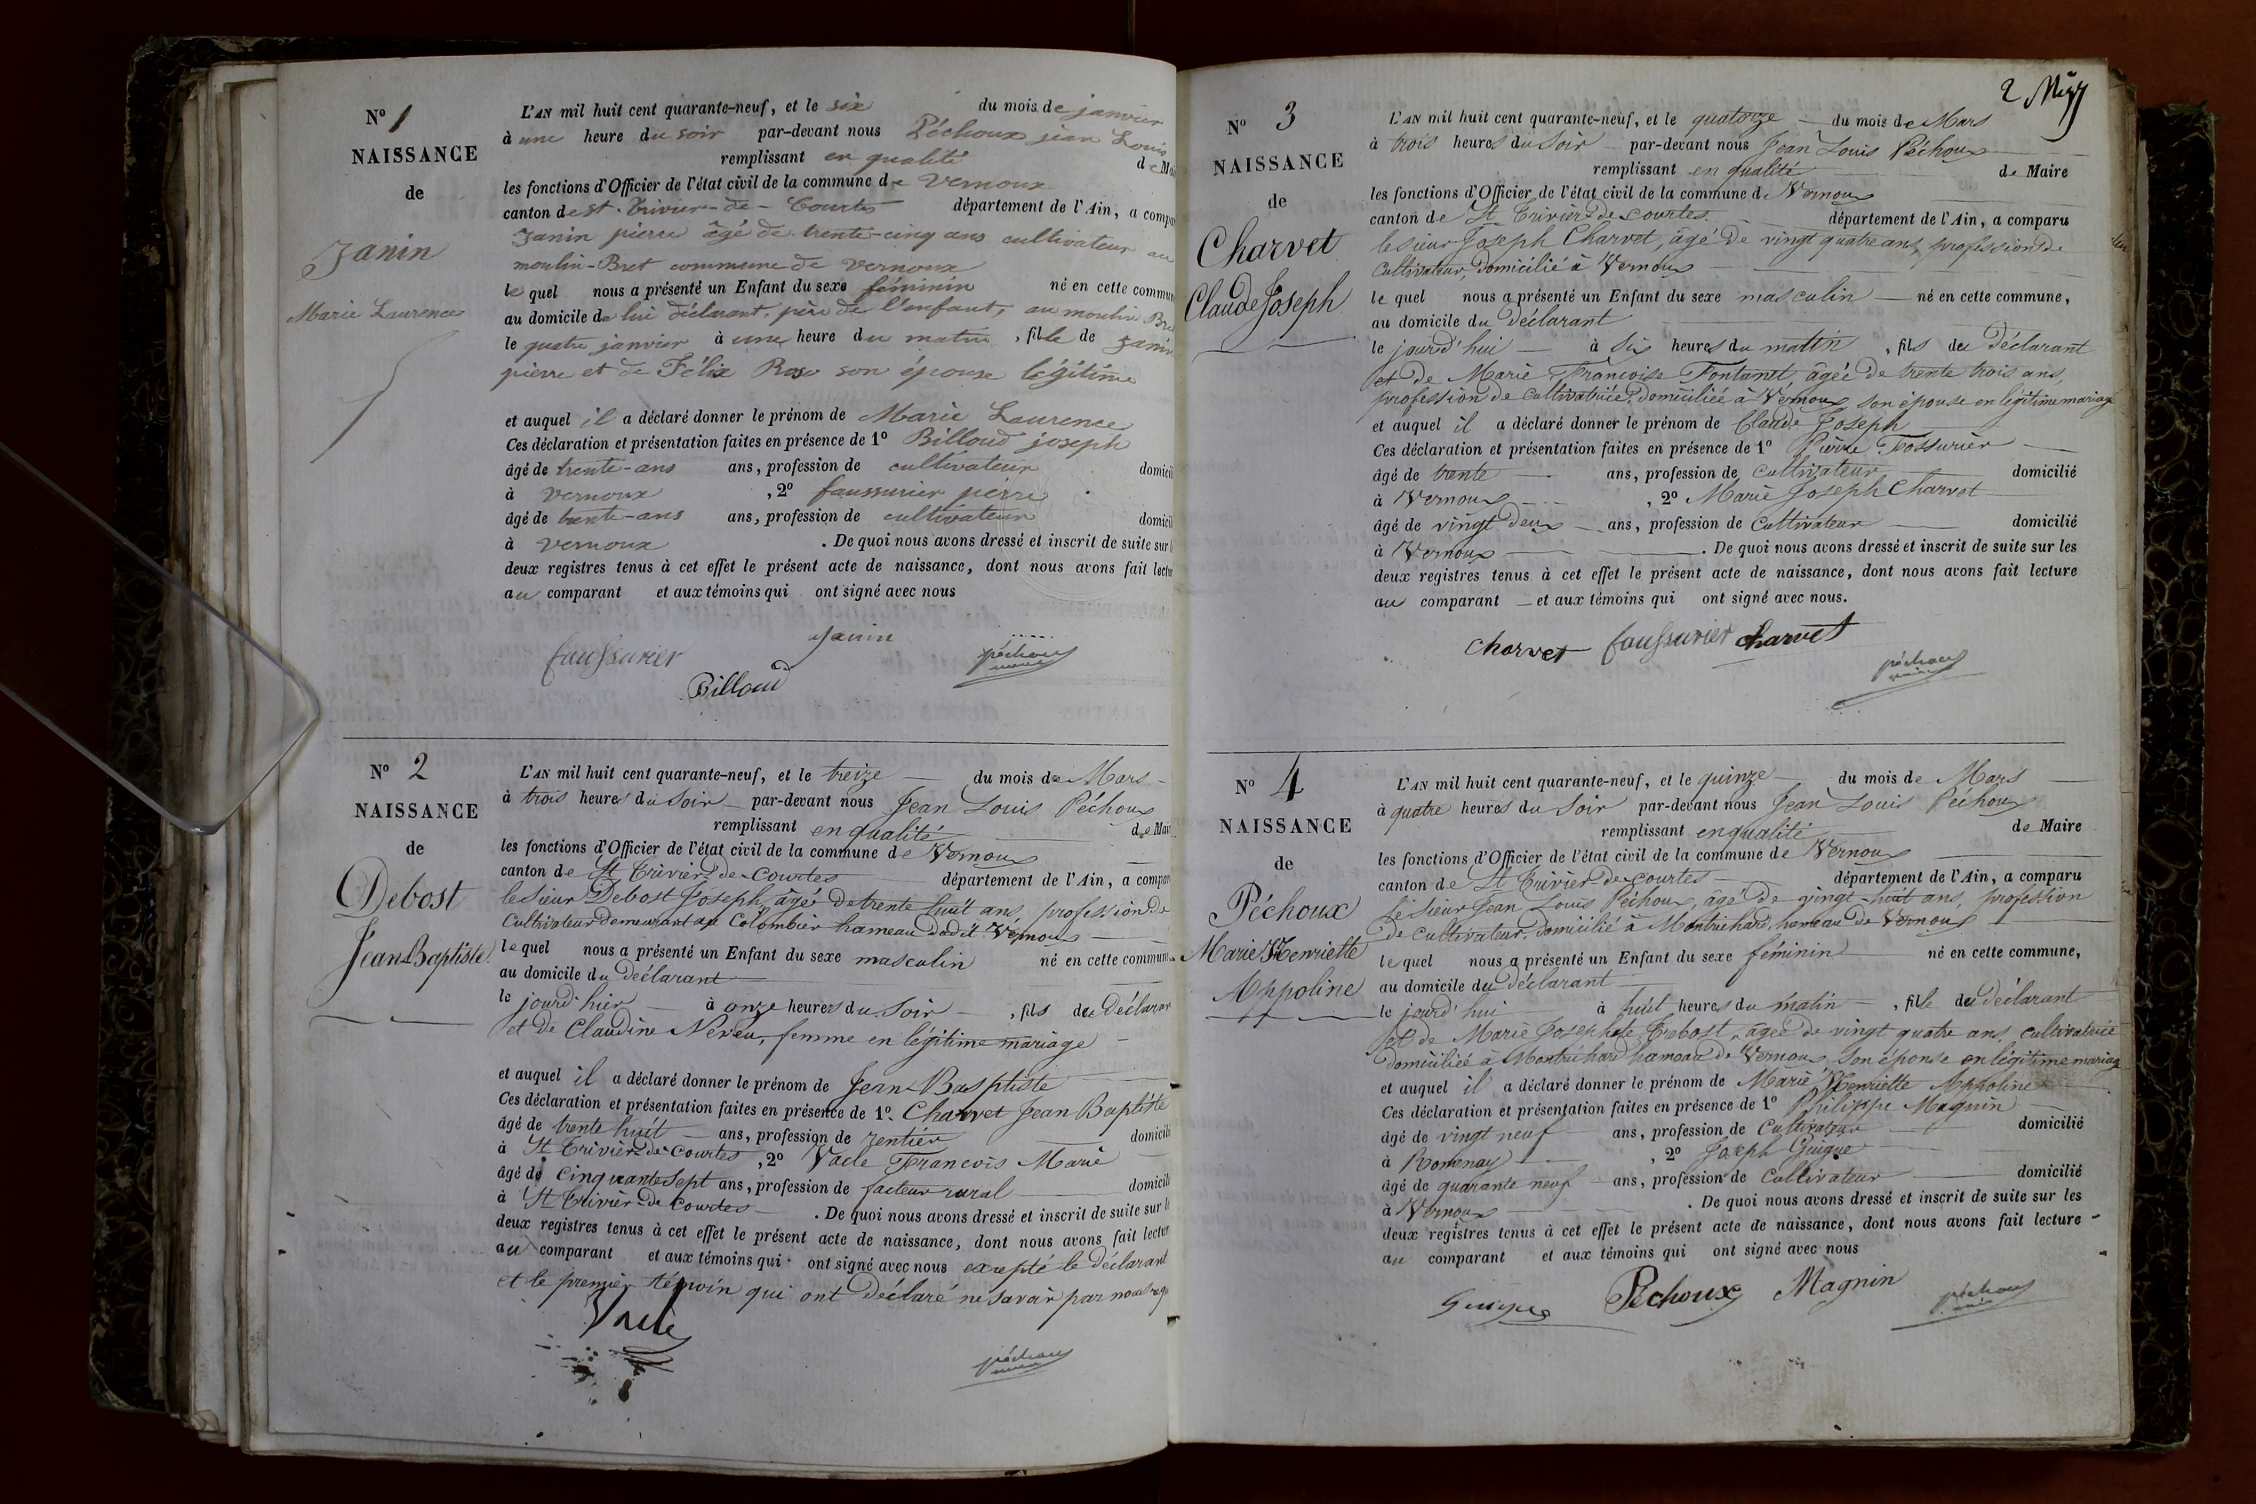 N° 1
NAISSANCE
de
Janin
Marie Laurence
L'AN mil huit cent quarante-neuf, et le six du mois de janvier
à une heure du soir par-devant nous Péchoux jean Louis
remplissant en qualité de Mai
les fonctions d'Officier de l'état civil de la commune de Vernoux
canton de St. Trivier-de-Courtes département de l'Ain, a compa
Janin pierre âgé de trente-cinq ans cultivateur au
moulin-Bret commune de Vernoux
le quel nous a présenté un Enfant du sexe féminin né en cette commun
au domicile de lui déclarant, père de l'enfant, au moulin Bre
le quatre janvier à une heure du matin, fille de Janin
pierre et de Félix Rose son épouse légitime
et auquel il a déclaré donner le prénom de Marie Laurence
Ces déclaration et présentation faites en présence de 1° Billoud joseph
âgé de trente-ans ans, profession de cultivateur domicili
à vernoux , 2° faussurier pierre
âgé de trente-ans ans, profession de cultivateur domicil
à vernoux . De quoi nous avons dressé et inscrit de suite sur l
deux registres tenus à cet effet le présent acte de naissance, dont nous avons fait lectu
au comparant et aux témoins qui ont signé avec nous
Janin
faussurier péchoux
maire
Billoud
N° 2
NAISSANCE
de
Debost
Jean Baptiste
L'AN mil huit cent quarante-neuf, et le treize du mois de Mars
à trois heures du soir par-devant nous Jean Louis Péchoux
remplissant en qualité de Mair
les fonctions d'Officier de l'état civil de la commune de Vernoux
canton de St Trivier-de-Courtes département de l'Ain, a compar
le sieur Debost Joseph, âgé de trente huit ans, profession de
Cultivateur demeurant au Colombier hameau dudit Vernoux
le quel nous a présenté un Enfant du sexe masculin né en cette commune
au domicile du déclarant
le jourd'hier à onze heures du soir , fils du Déclaran
et de Claudine Neveu, femme en légitime mariage
et auquel il a déclaré donner le prénom de Jean-Basptiste
Ces déclaration et présentation faites en présence de 1°. Charvet Jean Baptiste
âgé de trente huit ans, profession de rentier domicili
à St Trivier-de-Courtes , 2° Vacle François Marie
âgé de cinquante sept ans, profession de facteur rural domicili
à St Trivier-de-Courtes . De quoi nous avons dressé et inscrit de suite sur le
deux registres tenus à cet effet le présent acte de naissance, dont nous avons fait lectur
au comparant et aux témoins qui ont signé avec nous excepté le déclarant
et le premier témoin qui ont déclaré ne savoir par nous requ
Vacle
péchoux
maire
2
N° 3
NAISSANCE
de
Charvet
Claude Joseph
L'AN mil huit cent quarante-neuf, et le quatorze du mois de Mars
à trois heures du soir par-devant nous Jean Louis Péchoux
remplissant en qualité de Maire
les fonctions d'Officier de l'état civil de la commune de Vernoux
canton de St Trivier-de-courtes département de l'Ain, a comparu
le sieur Joseph Charvet, âgé de vingt quatre ans, profession de
Cultivateur, domicilié à Vernoux
le quel nous a présenté un Enfant du sexe masculin né en cette commune,
au domicile du déclarant
le jourd'hui à six heures du matin , fils du Déclarant
et de Marie Françoise Fontanet, âgée de trente trois ans,
profession de cultivatrice, domiciliée à Vernoux son épouse en légitime mariage
et auquel il a déclaré donner le prénom de Claude Joseph
Ces déclaration et présentation faites en présence de 1° Pierre Fossurier
âgé de trente ans, profession de cultivateur domicilié
à Vernoux , 2° Marie Joseph Charvet
âgé de vingt deux ans, profession de Cultivateur domicilié
à Vernoux . De quoi nous avons dressé et inscrit de suite sur les
deux registres tenus à cet effet le présent acte de naissance, dont nous avons fait lecture
au comparant et aux témoins qui ont signé avec nous.
Charvet faussurier charvet
péchoux
maire
N° 4
NAISSANCE
de
Péchoux
Marie Henriette
Appoline
L'AN mil huit cent quarante-neuf, et le quinze du mois de Mars
à quatre heures du soir par-devant nous Jean Louis Péchoux
remplissant en qualité de Maire
les fonctions d'Officier de l'état civil de la commune de Vernoux
canton de St Trivier-de-courtes département de l'Ain, a comparu
le sieur Jean Louis Péchoux, âgé de vingt-huit ans, profession
de cultivateur, domicilié à Montrichard, hameau de Vernoux
le quel nous a présenté un Enfant du sexe féminin né en cette commune,
au domicile du déclarant
le jourd'hui à huit heures du matin , fille du déclarant
et de Marie Josephte Trebost, âgée de vingt quatre ans, cultivatrice
domiciliée à Montrichard hameau de Vernoux, son épouse en légitime mariage
et auquel il a déclaré donner le prénom de Marie Henriette Appoline
Ces déclaration et présentation faites en présence de 1° Philippe Magnin
âgé de vingt neuf ans, profession de Cultivateur domicilié
à Romenay , 2° Joseph Guigue
âgé de quarante neuf ans, profession de Cultivateur domicilié
à Vernoux . De quoi nous avons dressé et inscrit de suite sur les
deux registres tenus à cet effet le présent acte de naissance, dont nous avons fait lecture
au comparant et aux témoins qui ont signé avec nous
Guigue Péchoux Magnin péchoux
maire